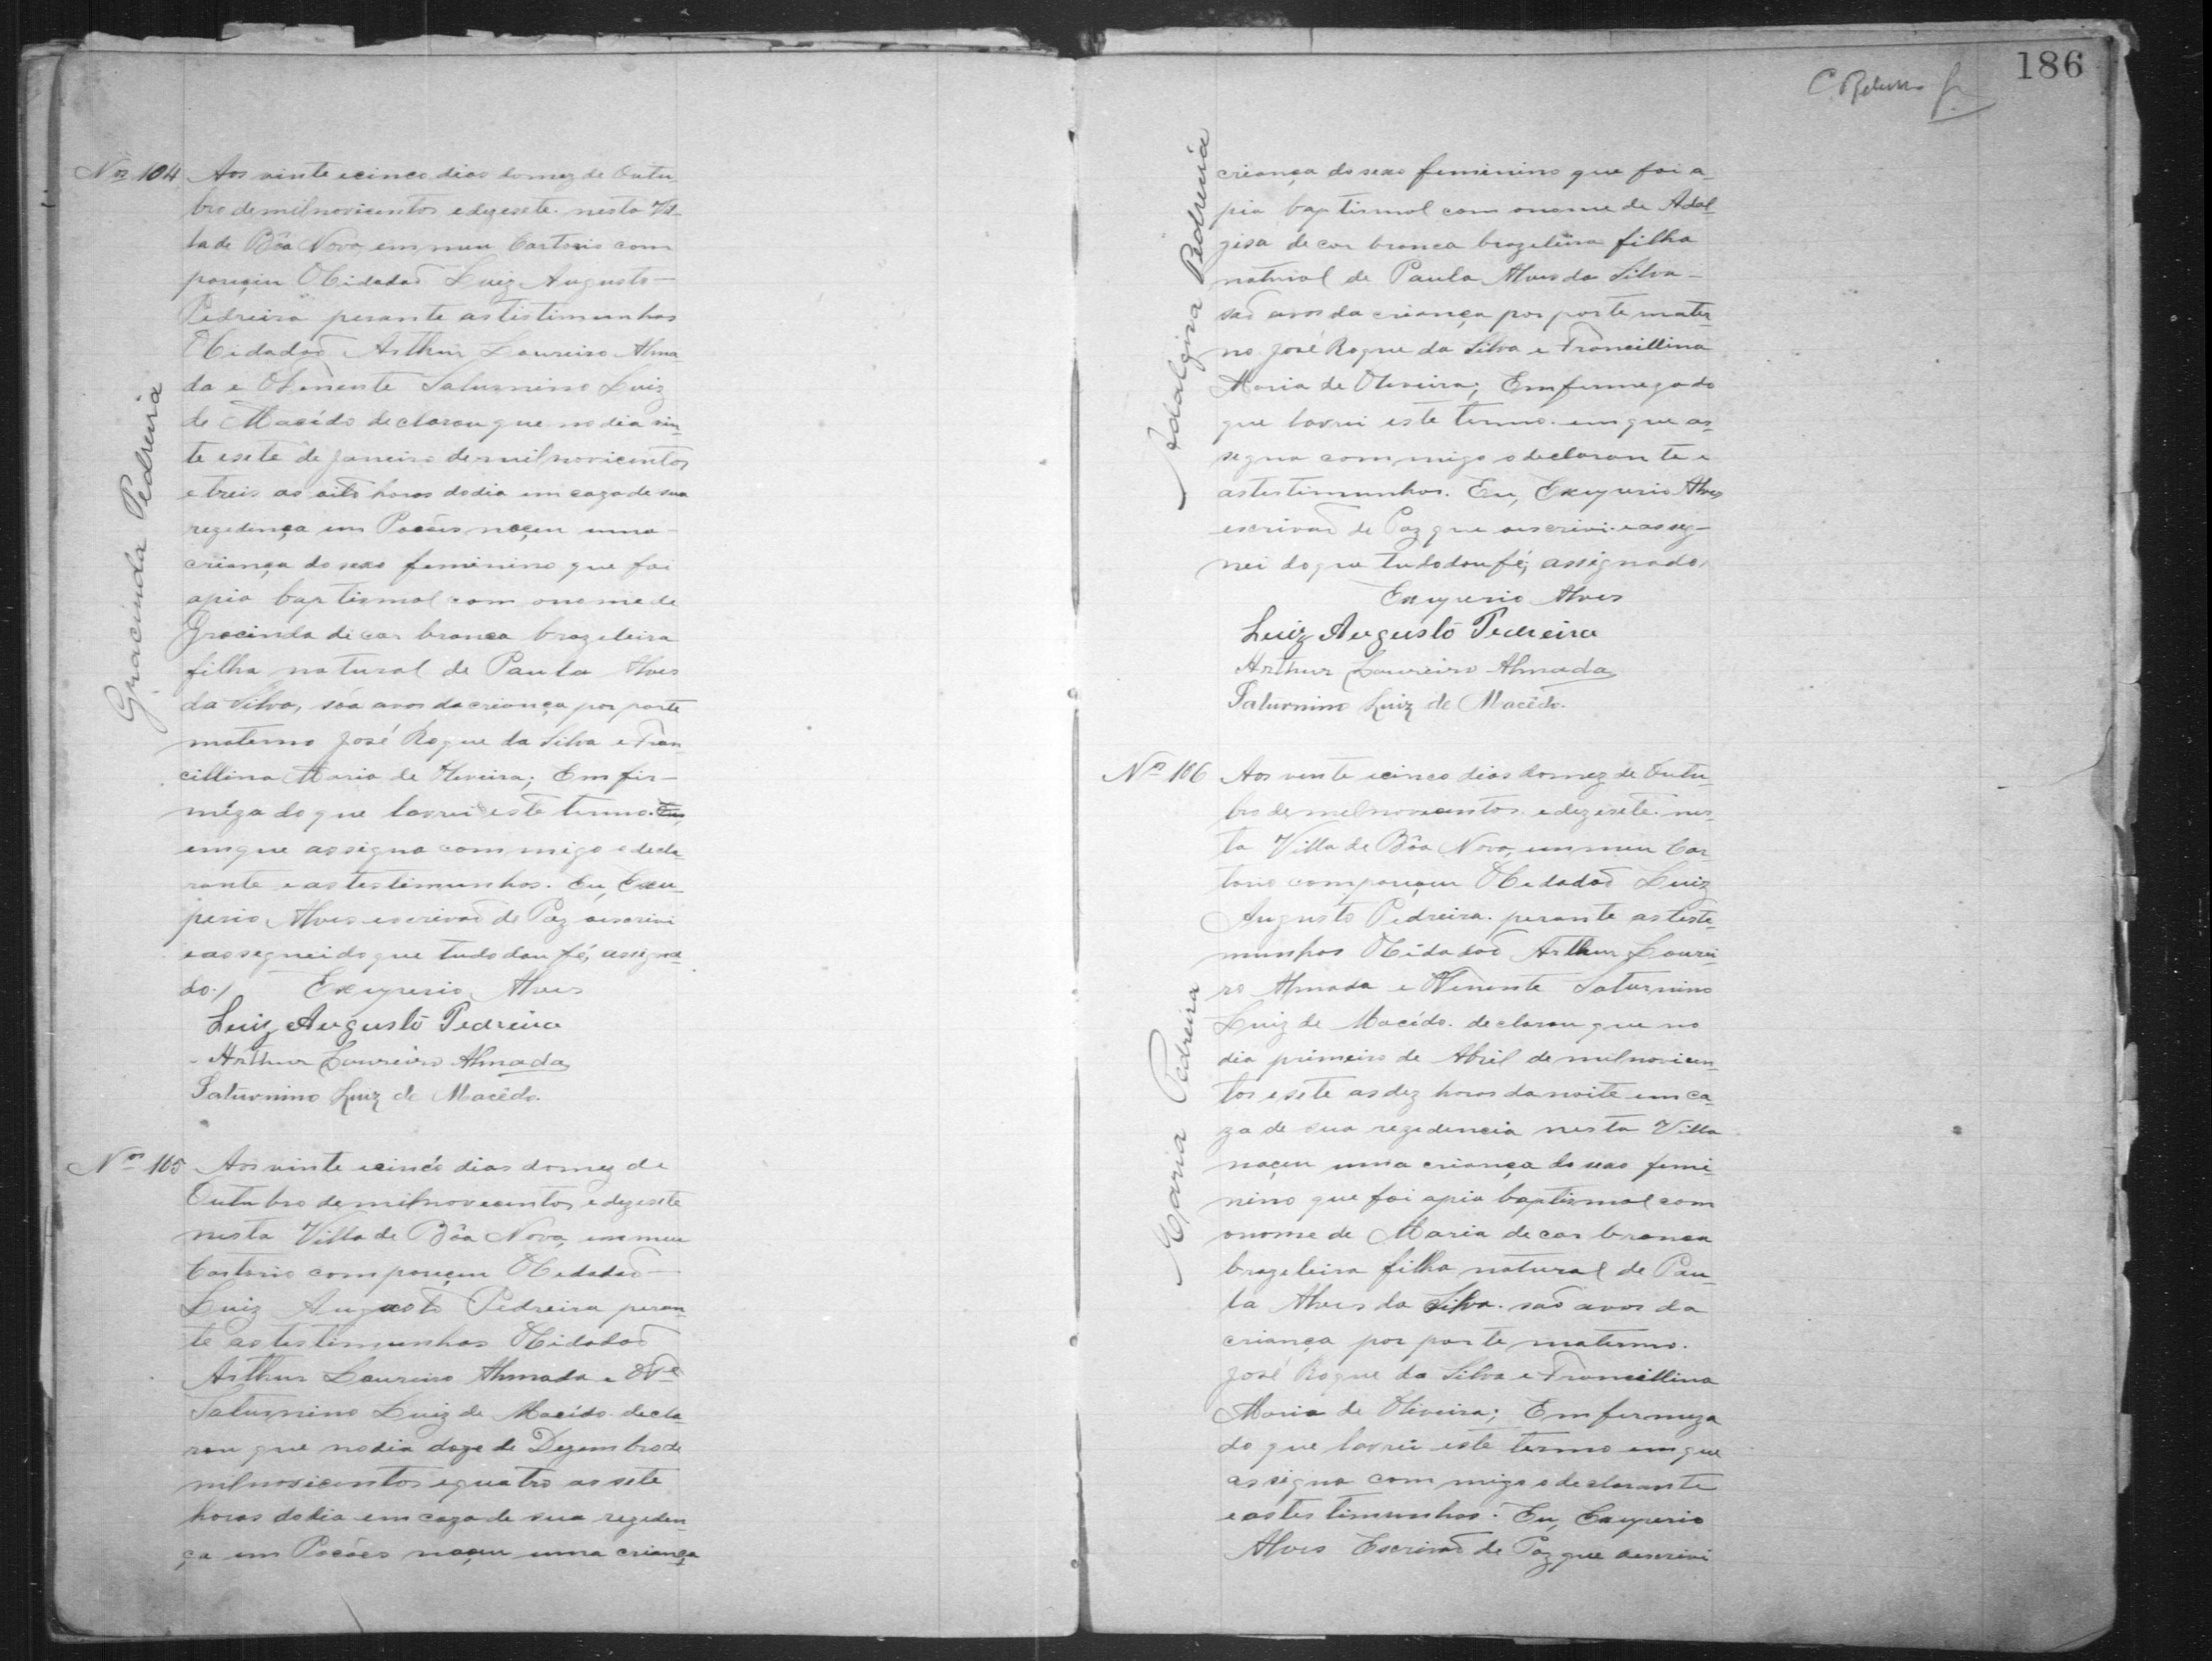 Nº 104 Aos vinte e cinco dias do mez de Outu
bro de mil novicentos e dezesete nesta Vil-
la de Bôa Nova, em meu Cartorio com
pareçeu O Cidadaõ Luiz Augusto
Pedreira perante as tistimunhas
O Cidadaõ Arthur Loureiro Alma
da e O Tenente Saturnino Luiz
de Macêdo declarou que no dia vin-
te e sete de Janeiro de mil novicentos
e treis as oito horas do dia em caza de sua
rezedença em Pocões naçeu uma
criança do sexo feminino que foi
a pia baptismal com o nome de
Gracinda de cor branca brazeleira
filha natural de Paula Alves
da Silva, sâo avos da criança por parte
materno José Roque da Silva e Fran
cillina Maria de Oliveira; Em fir-
mêza do que lavrei este termo.
em que assigna commigo o decla
rante e as testimunhos. Eu, Exu-
perio Alves escrivaõ de Paz o escrivi
e assegnei do que tudo dou fé, assigna
do./ Exuperio Alves
Luiz Augusto Pedreira
Arthur Loureiro Almada
Saturnino Luiz de Macêdo.
Gracinda Pedreira
Nº 105 Aos vinte e cinco dias do mez de
Outubro de mil novecentos e dezesete
nesta Villa de Bôa Nova, em meu
Cartorio compareçeu O Cedadaõ
Luiz Augusto Pedreira peran
te as testimunhas O Cidadaõ
Arthur Loureiro Almada e O Te
Saturnino Luiz de Macêdo decla
rou que no dia doze de Dezembro de
mil novicentos e quatro as sete
horas do dia em caza de sua rezeden-
ça em Pocões naçeu uma criança
186
criança do sexo feminino que foi a
pia baptismal com o nome de Adal-
gisa de cor branca brazeleira filha
natural de Paula Alves da Silva
saõ avos da criança por parte mater-
no José Roque da Silva e Francillina
Maria de Oliveira; Em fermeza do
que lavrei este termo em que as-
segna commigo o declarante e
as testimunhos. Eu, Exuperio Alves
escrivaõ de Paz que o escrivi e asseg-
nei do que tudo dou fé; assignado,
Exuperio Alves
Luiz Augusto Pedreira
Arthur Loureiro Almada
Saturnino Luiz de Macêdo.
Adalgisa Pedreira
Nº 106 Aos vente e cinco dias do mez de Outu-
bro de mel novecentos e dezesete nes-
ta Villa de Bôa Nova, em meu Car
torio compareçeu O Cedadaõ Luiz
Augusto Pedreira perante as teste-
munhas O Cidadaõ Arthur Lourei-
ro Almada e O Tenente Saturnino
Luiz de Macêdo declarou que no
dia primeiro de Abril de mil novicen-
tos e sete as dez horas da noite em ca-
za de sua rezedencia nesta Villa
naçeu uma criança do sexo femi-
nino que foi a pia baptismal com
o nome de Maria de cor branca
brazeleira filha natural de Pau-
la Alves da Silva. saõ avos da
criança por parte materno.
José Roque da Silva e Francillina
Maria de Oliveira; Em fermeza
do que lavrei este termo em que
assigna commigo o declarante
e as testimunhos. Eu, Exuperio
Alves Escrivaõ de Paz que o escrivi
Maria Pedreira